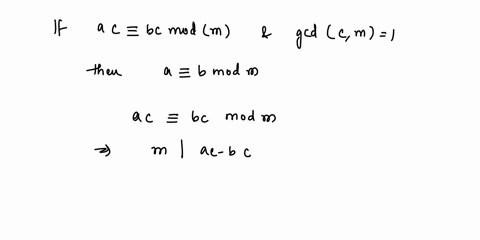 If ac ≡ bc mod (m) & gcd (c, m) = 1
then a ≡ b mod m
ac ≡ bc mod m
⇒ m | ac - bc